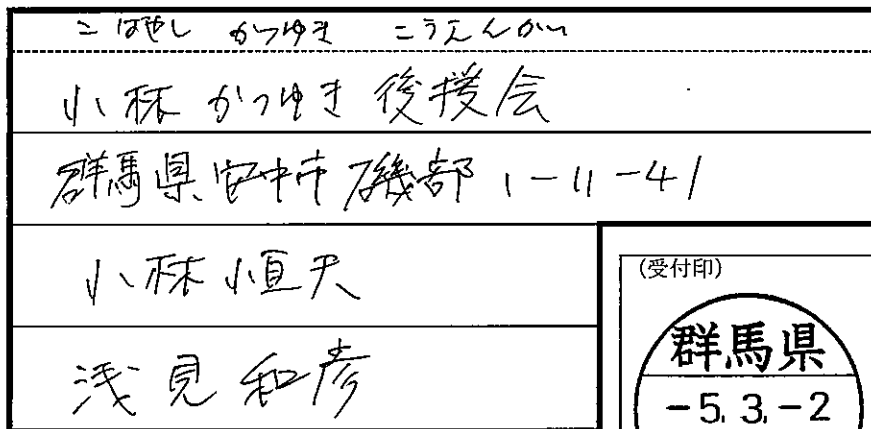 こばやし かつゆき こうえんかい
小林かつゆき後援会
群馬県安中市磯部1-11-41
小林恒夫
浅見和彦
(受付印)
群馬県
-5.3.-2